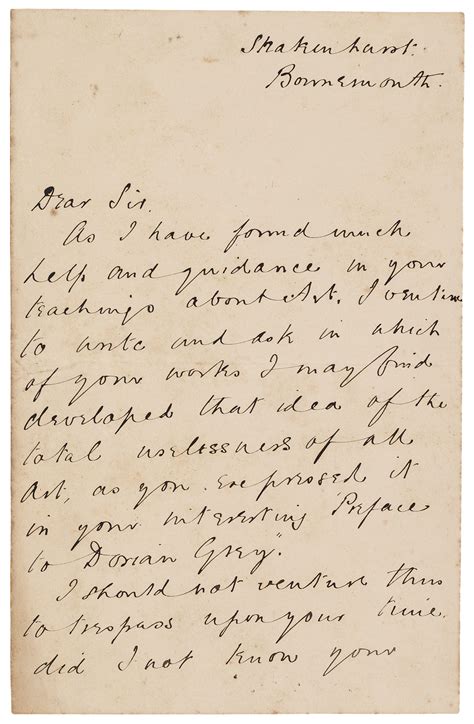 Skakenhurst.
Bournemouth.
Dear Sir,
As I have found much
help and guidance in your
teachings about Art. I venture
to write and ask in which
of your works I may find
developed that idea of the
total uselessness of all
Art, as you expressed it
in your interesting Preface
to Dorian Grey."
I should not venture thus
to trespass upon your time
did I not know your